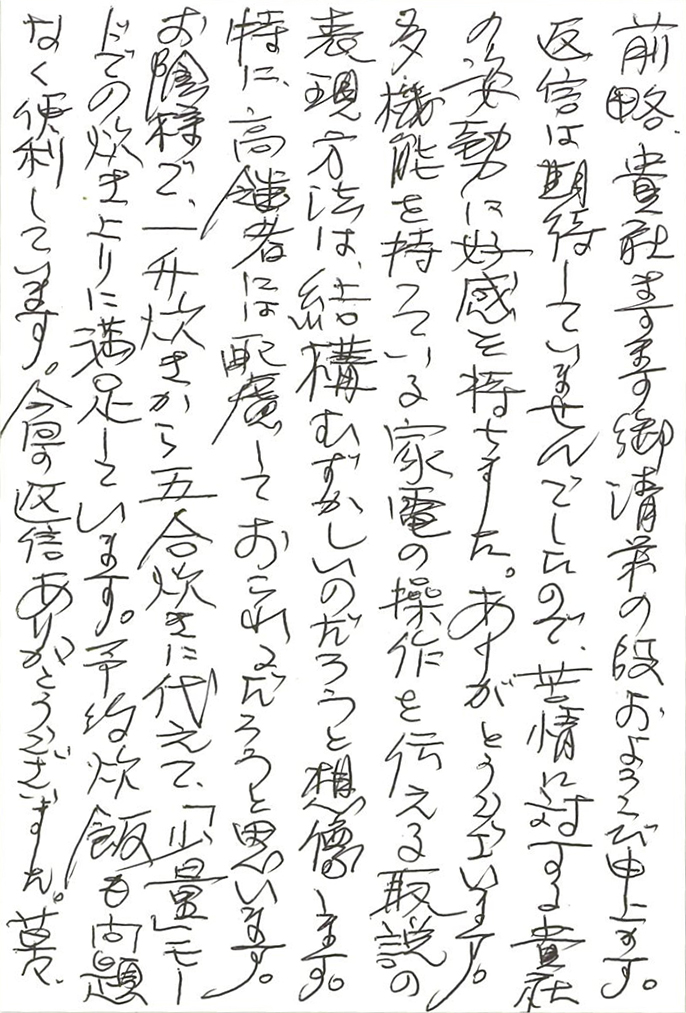 前略、貴社ますます御清栄の段およろこび申上ます。
返信は期待していませんでしたので、苦情に対する貴社
の姿勢に好感を持ちました。ありがとうございます。
多機能を持っている家電の操作を伝える取説の
表現方法は、結構むずかしいのだろうと想像します。
特に、高齢者には配慮しておこれるだろうと思います。
お陰様で、一升炊きから五合炊きに代えて、「少量」モー
ドでの炊き上りに満足しています。予約炊飯も問題
なく便利しています。今回の返信ありがとうございました。草々、